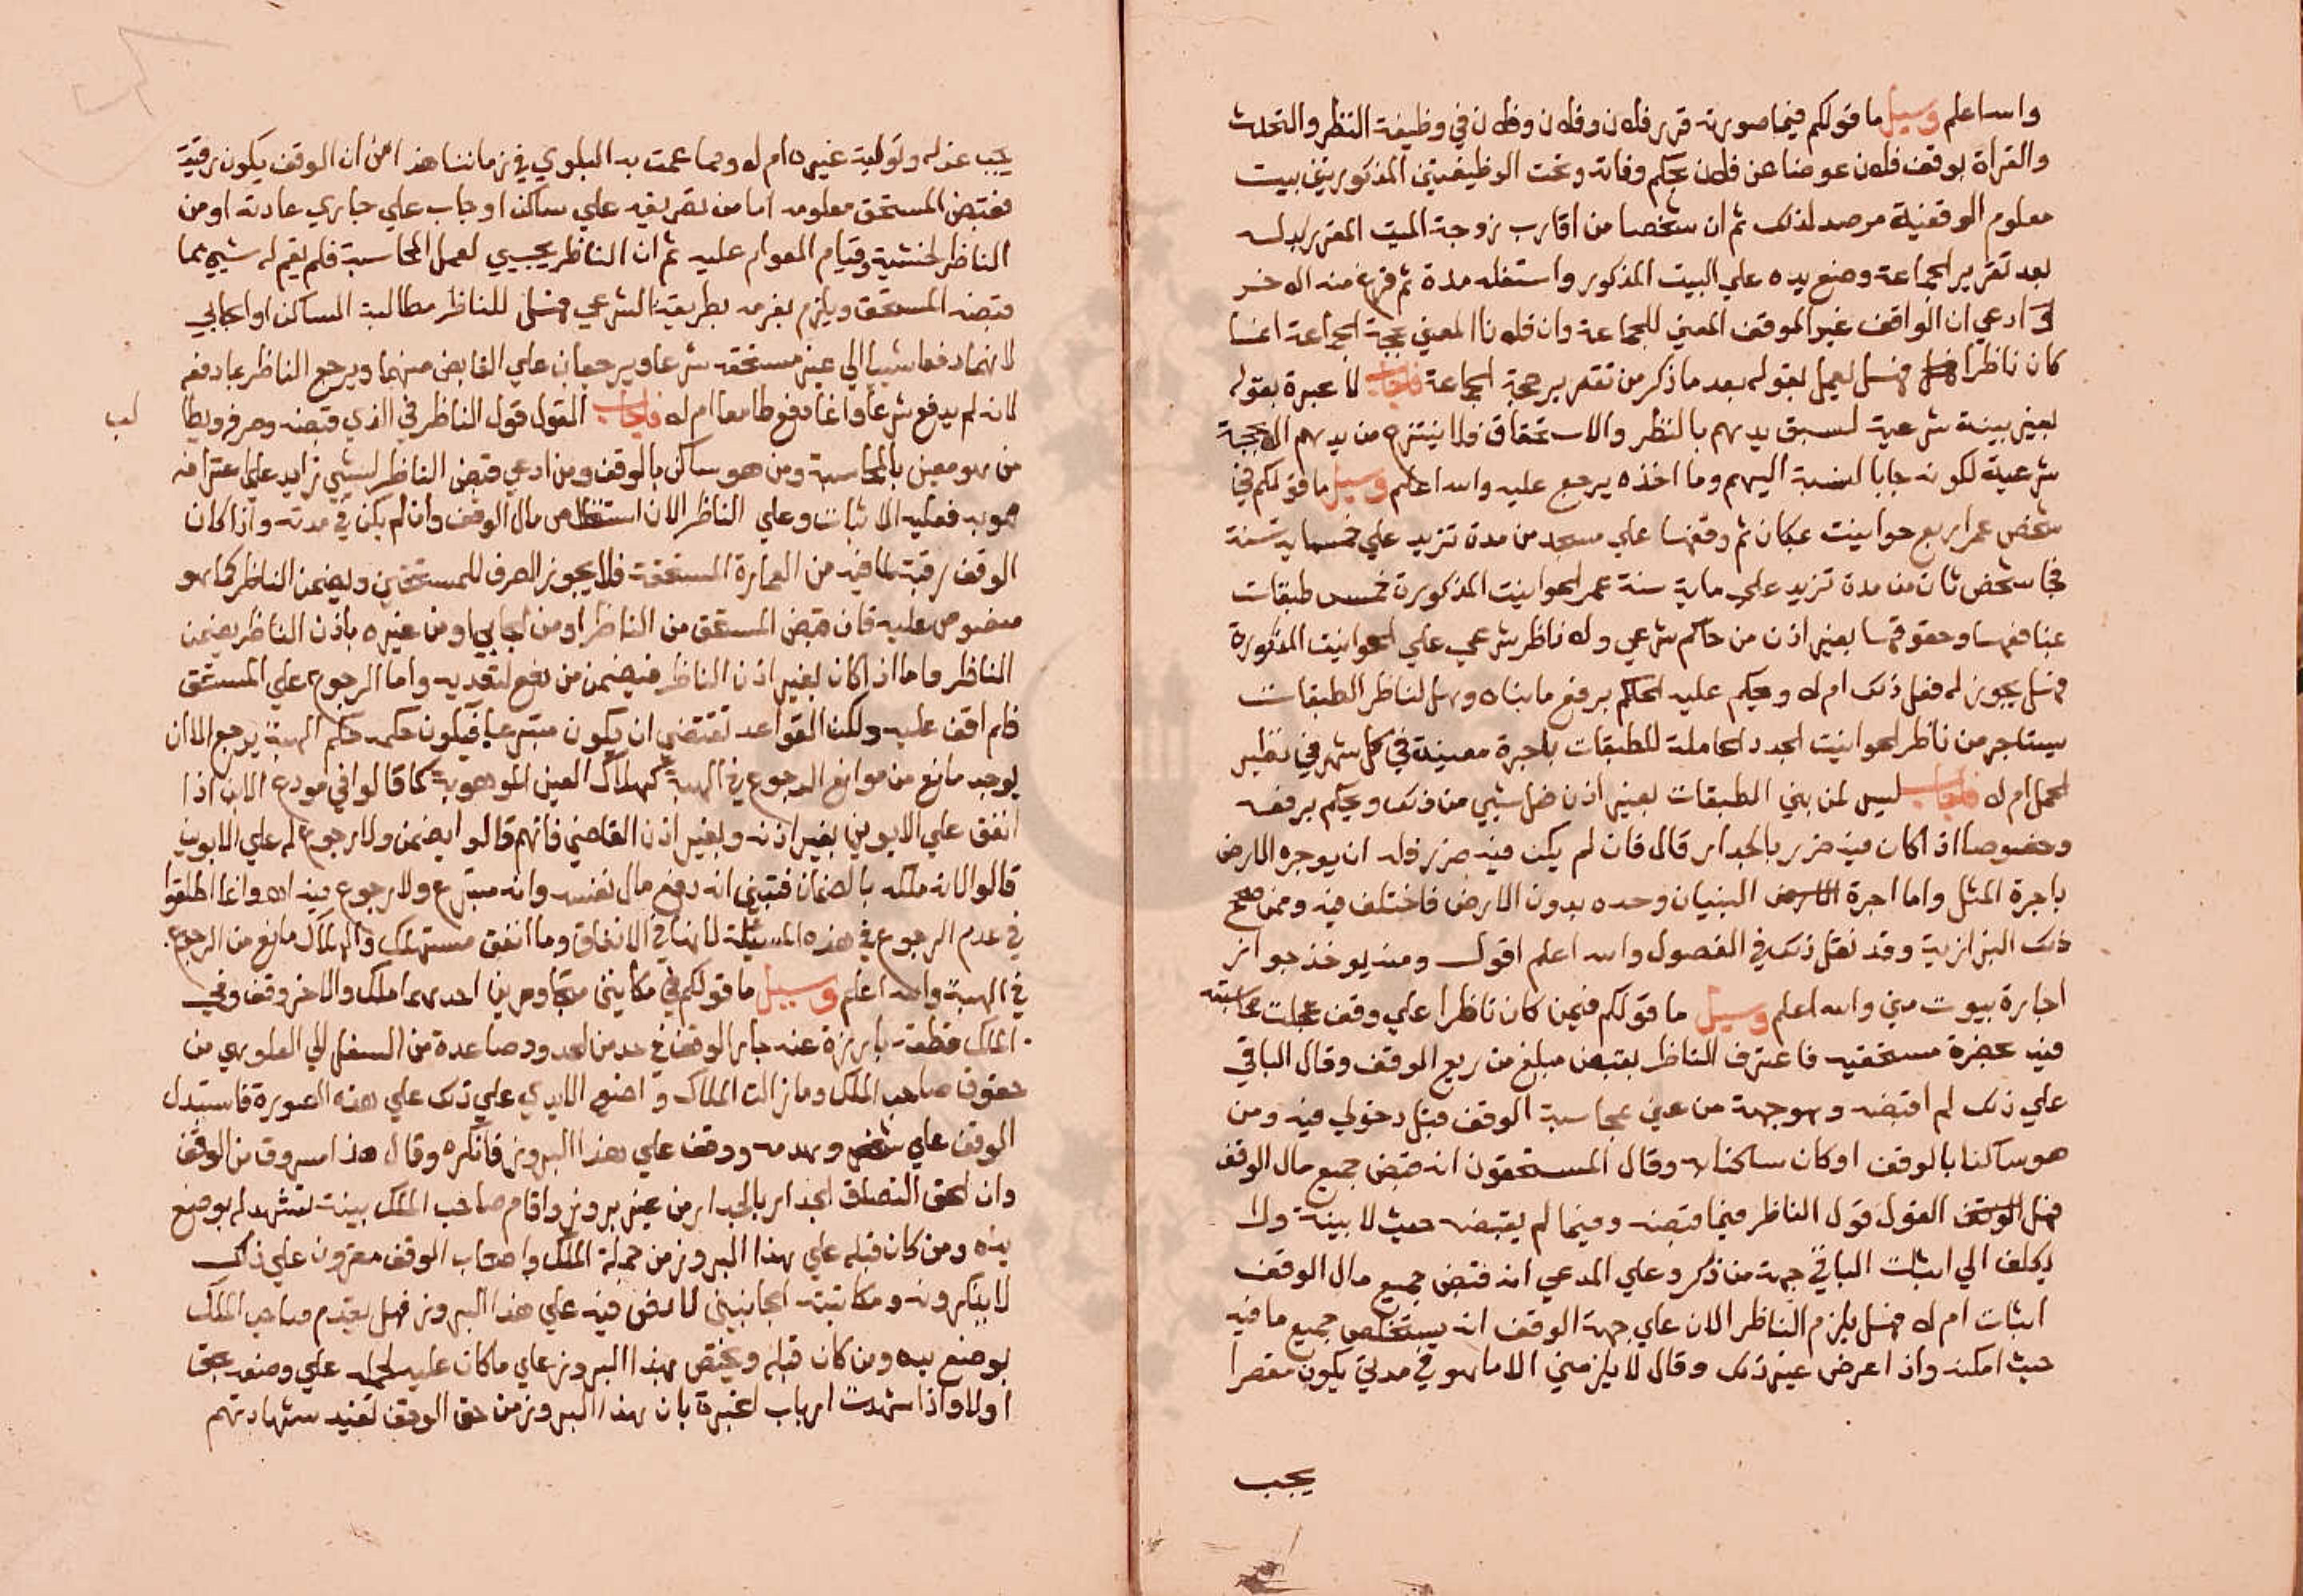 والله اعلم وسيل ما قولكم فيما صورته قرر فلان وفلان وفلان في وظيفة النظر والتحدث
والقراة بوقف فلان عوضا عن فلان بحكم وفاته وتحت الوظيفيتين المذكورتين بيت
معلوم الوقفية مرصد لذلك ثم ان شخصا من اقارب زوجة الميت المقرر بدله
بعد تقرير الجماعة وضع يده علي البيت المذكور واستغله مدة ثم فرغ منه الاخر
ادعي ان الواقف غير الموقف المعين للجماعة وان فلانا المعين بحجة الجماعة انما
كان ناظرا فهل يعمل بقوله بعد ما ذكر من تقرير حجة الجماعة فاجاب لا عبرة بقوله
بغير بينة شرعية لسبق يدهم بالنظر والاستحقاق فلا ينتزع من يدهم الا بحجة
شرعية لكونه جابا لنسبة اليهم وما اخذه يرجع عليه والله اعلم وسيل ما قولكم في
شخص عمر اربع حوانيت بمكان ثم وقفها علي مسجد من مدة تزيد علي خمسماية سنة
فجا شخص ثان من مدة تزيد علي ماية سنة عمر الحوانيت المذكورة خمس طبقات
بمنافعها وحقوقها بغير اذن من حاكم شرعي ولا ناظر شرعي علي الحوانيت المذكورة
فهل يجوز له فعل ذلك ام لا ويحكم عليه الحاكم برفع ما بناه وهل لناظر الطبقات
يستاجر من ناظر الحوانيت الجدد الحاملة للطبقات باجرة معينة في كل شهر في نظير
الحمل ام لا فاجاب ليس لمن بني الطبقات بغير اذن فعل شيي من ذلك ويحكم برفعه
وخصوصا اذا كان فيه ضرر بالجدار قال فان لم يكن فيه ضرر فله ان يوجره الارض
باجرة المثل واما اجرة البنيان وحده بدون الارض فاختلف فيه وممن صحح
ذلك البزازية وقد نقل ذلك في الفصول والله اعلم اقول ومنه يوخذ جواز
اجارة بيوت مني والله اعلم وسيل ما قولكم فيمن كان ناظرا علي وقف عملت محاسبته
فيه بحضرة مستحقيه فاعترف الناظر بقبض مبلغ من ريع الوقف وقال الباقي
علي ذلك لم اقبضه وهو جهة من عين بمحاسبة الوقف قبل دخولي فيه ومن
هو ساكنا بالوقف او كان ساكنا به وقال المستحقون انه قبض جميع مال الوقف
فهل القول قول الناظر فيما قبضه وفيما لم يقبضه حيث لا بينة ولا
يكلف الي اثبات الباقي جهة من ذكر وعلي المدعي انه قبض جميع مال الوقف
اثبات ام لا فهل يلزم الناظر الان علي جهة الوقف انه يستخلص جميع ما فيه
حيث امكنه واذا اعرض عن ذلك وقال لا يلزمني الا ما هو في مدتي يكون مقصرا
يجب
يجب عزله وتولية غيره ام لا ومما عمت به البلوي في زماننا هذا من ان الوقف يكون رقبة
فقبض المستحق معلومه اما من تصريفه علي ساكن او جاب علي جاري عادته او من
الناظر لخشية وقيام العوام عليه ثم ان الناظر يجيي لعمل المحاسبة فلم يقم له شيي مما
قبضه المستحق ويلزم بغرمه بطريقة الشرعي فهل للناظر مطالبة الساكن او الجابي
لانهما دفعا شيا الي غير مستحقه شرعا ويرجعان علي القابض منهما ويرجع الناظر بما دفعه
لانه لم يدفع شرعا وانما دفع طامعا ام لا فاجاب القول قول الناظر في الذي قبضه وصرفه ويطا
لب
من هو معين بالمحاسبة ومن هو ساكن بالوقف ومن ادعي قبض الناظر لشيي زايد علي اعترافه
هو به فعليه الاثبات وعلي الناظر الان استخلاص مال الوقف وان لم يكن في مدته واذا كان
الوقف رقبة لما فيه من العمارة المستحقة فلا يجوز الصرف للمستحقين ويضمن الناظر كما هو
منصوص عليه فان قبض المستحق من الناظر او من الجابي او من غيره باذن الناظر يضمن
الناظر واما اذا كان بغير اذن الناظر فيضمن من دفع لتعديه واما الرجوع علي المستحق
فلم اقف عليه ولكن القواعد تقتضي ان يكون متبرعا فيكون حكمه حكم الهبة يرجع الا ان
يوجد مانع من موانع الرجوع في الهبة كهلاك العين الموهوبة كما قالوا في مودع الابن اذا
انفق علي الابوين بغير اذنه وبغير اذن القاضي فانهم قالوا يضمن ولا رجوع له علي الابوين
قالوا لانه ملكه بالضمان فتبين انه دفع مال نفسه وانه متبرع ولا رجوع فيه اه وانما اطلقوا
في عدم الرجوع في هذه المسيلة لانها في الانفاق وما انفق مستهلك والهلاك مانع من الرجوع
في الهبة والله اعلم وسيل ما قولكم في مكانين متجاورين احدهما ملك والاخر وقف وفي
الملك قطعة بارزة عند جار الوقف في حد من الحدود صاعدة من السفل الي العلو هي من
حقوق صاحب الملك وما زالت الملاك واضع الايدي علي ذلك علي هذه الصورة فاستبدل
الوقف علي شخص وهدمه ووقف علي هذا البروز فانكره وقال هذا مسروق من الوقف
وان الحق التصاق الجدار بالجدار من غير بروز واقام صاحب الملك بينة تشهد له بوضع
يده ومن كان قبله علي هذا البروز من جملة الملك واصحاب الوقف مقرون علي ذلك
لا ينكرونه ومكاتبته الجانبين لا نص فيه علي هذا البروز فهل يقدم صاحب الملك
بوضع يده ومن كان قبله ويختص بهذا البروز علي ما كان عليه لحمله علي وضعه بحق
اولا واذا شهدت ارباب الخبرة بان هذا البروز من حق الوقف تفيد شهادتهم